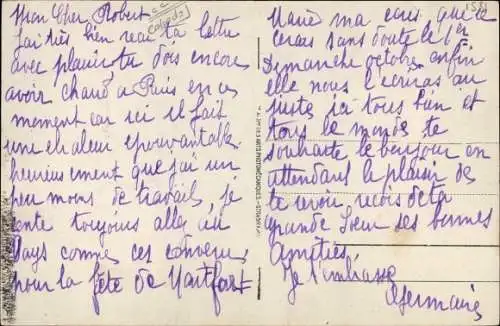 Mon Cher Robert
j'ai très bien recu ta lettre
avec plaisir, tu dois encore
avoir chaud a Paris en ce
moment car ici il fait
une chaleur épouvantable
heureusement que j'ai un
peu moins de travail, je
conte toujours aller au
Pays comme ces convenu
pour la fête de Montfort
Marie ma ecris que ce
cerais sans doute le 1er
Dimanche octobre enfin
elle nous l'écriras au
juste, ici tous bien et
tous le monde te
souhaite le bonjour en
attendans le plaisir de
te revoir recois de ta
grande Soeur ses bonnes
Amitiés
Je t'embrasse
Germaine